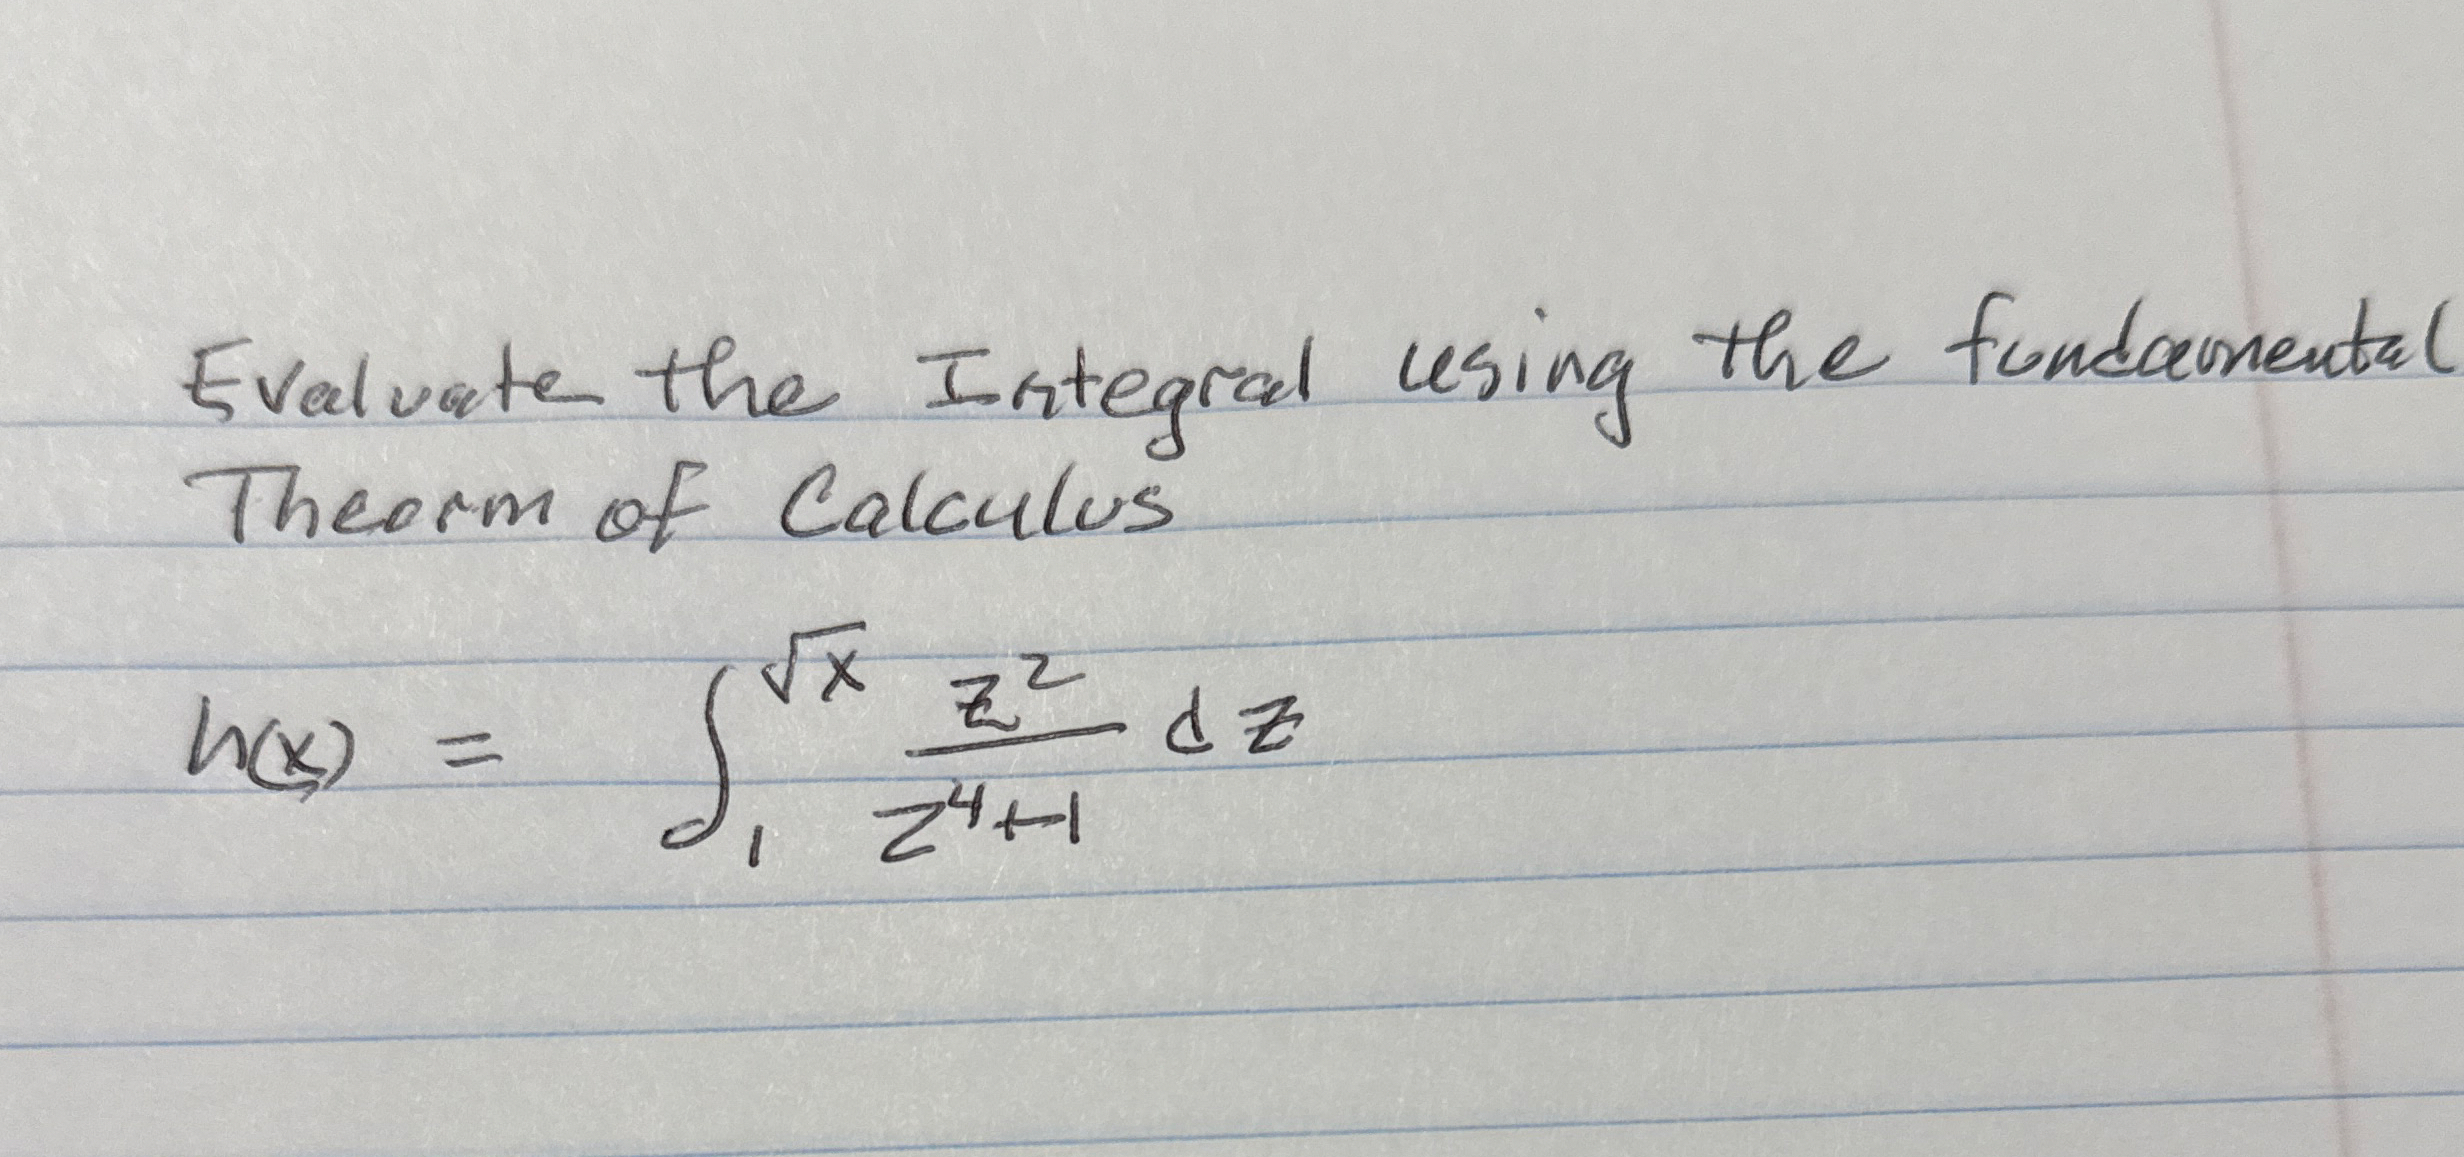 Evaluate the Integral using the fundamental
Theorm of Calculus
h(x) = ∫₁^√x z²/(z⁴+1) dz